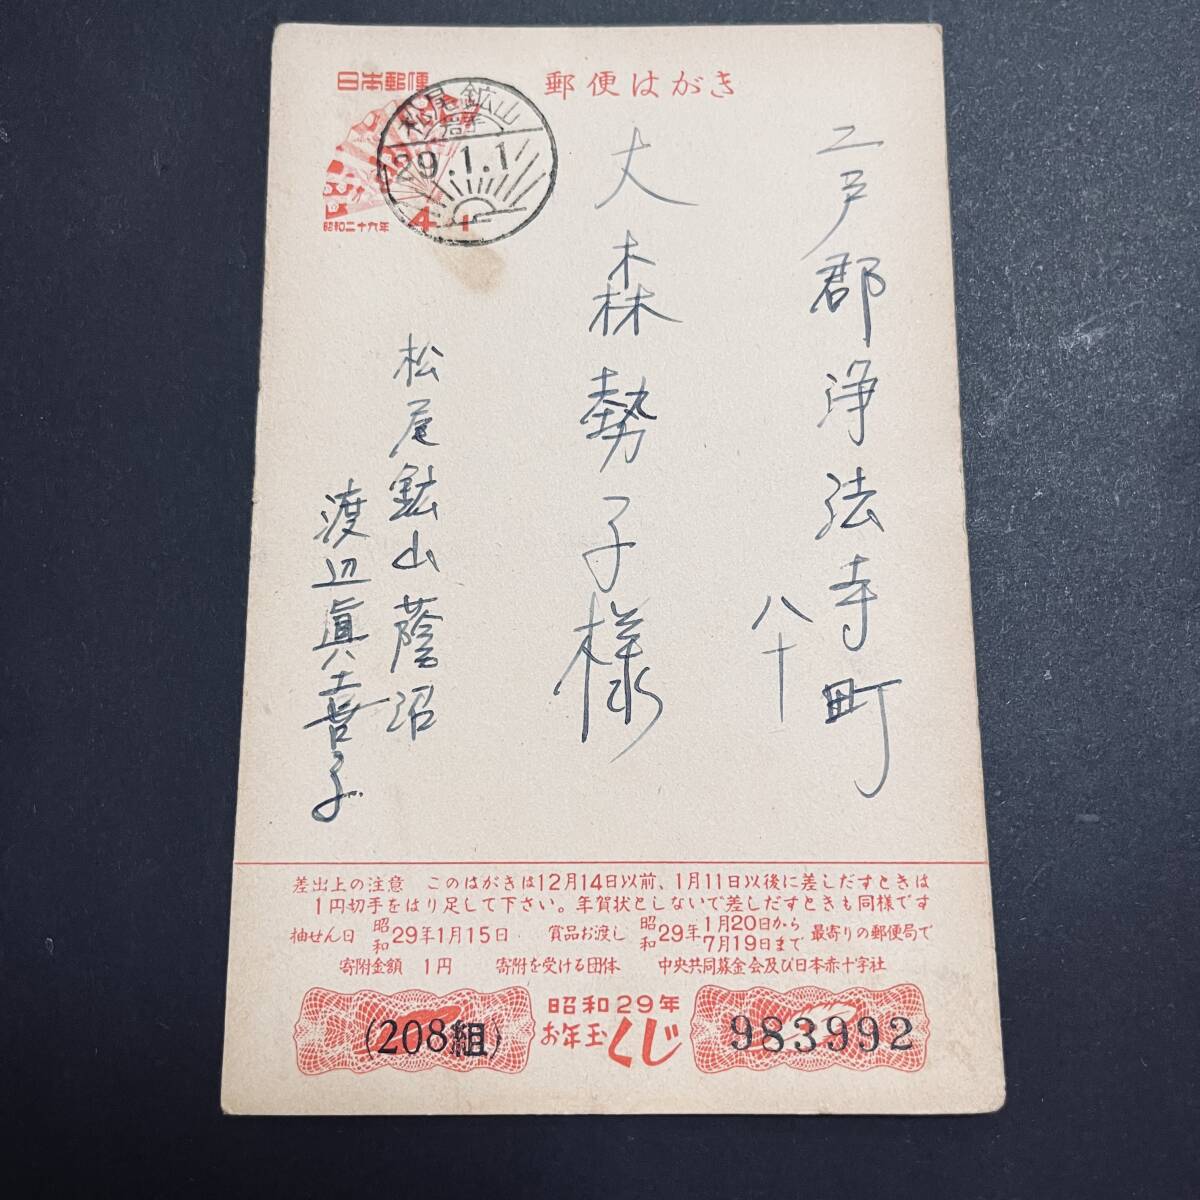 郵便はがき
日本郵便
4+1
昭和二十九年
松尾鉱山
岩手
29.1.1
二戸郡浄法寺町
八十
大森勢子様
松尾鉱山蔭沼
渡辺眞喜子
差出上の注意 このはがきは12月14日以前、1月11日以後に差しだすときは
1円切手をはり足して下さい。年賀状としないで差しだすときも同様です
抽せん日 昭和29年1月15日. 賞品お渡し 昭和29年1月20日から7月19日まで 最寄りの郵便局で
寄附金額 1円 寄附を受ける団体 中央共同募金会及び日本赤十字社
昭和29年
お年玉くじ
(208組)
983992